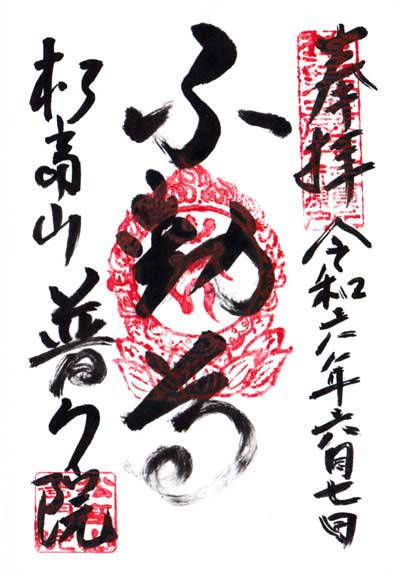 奉拝 令和六年六月七日
不動尊
高山 普門院